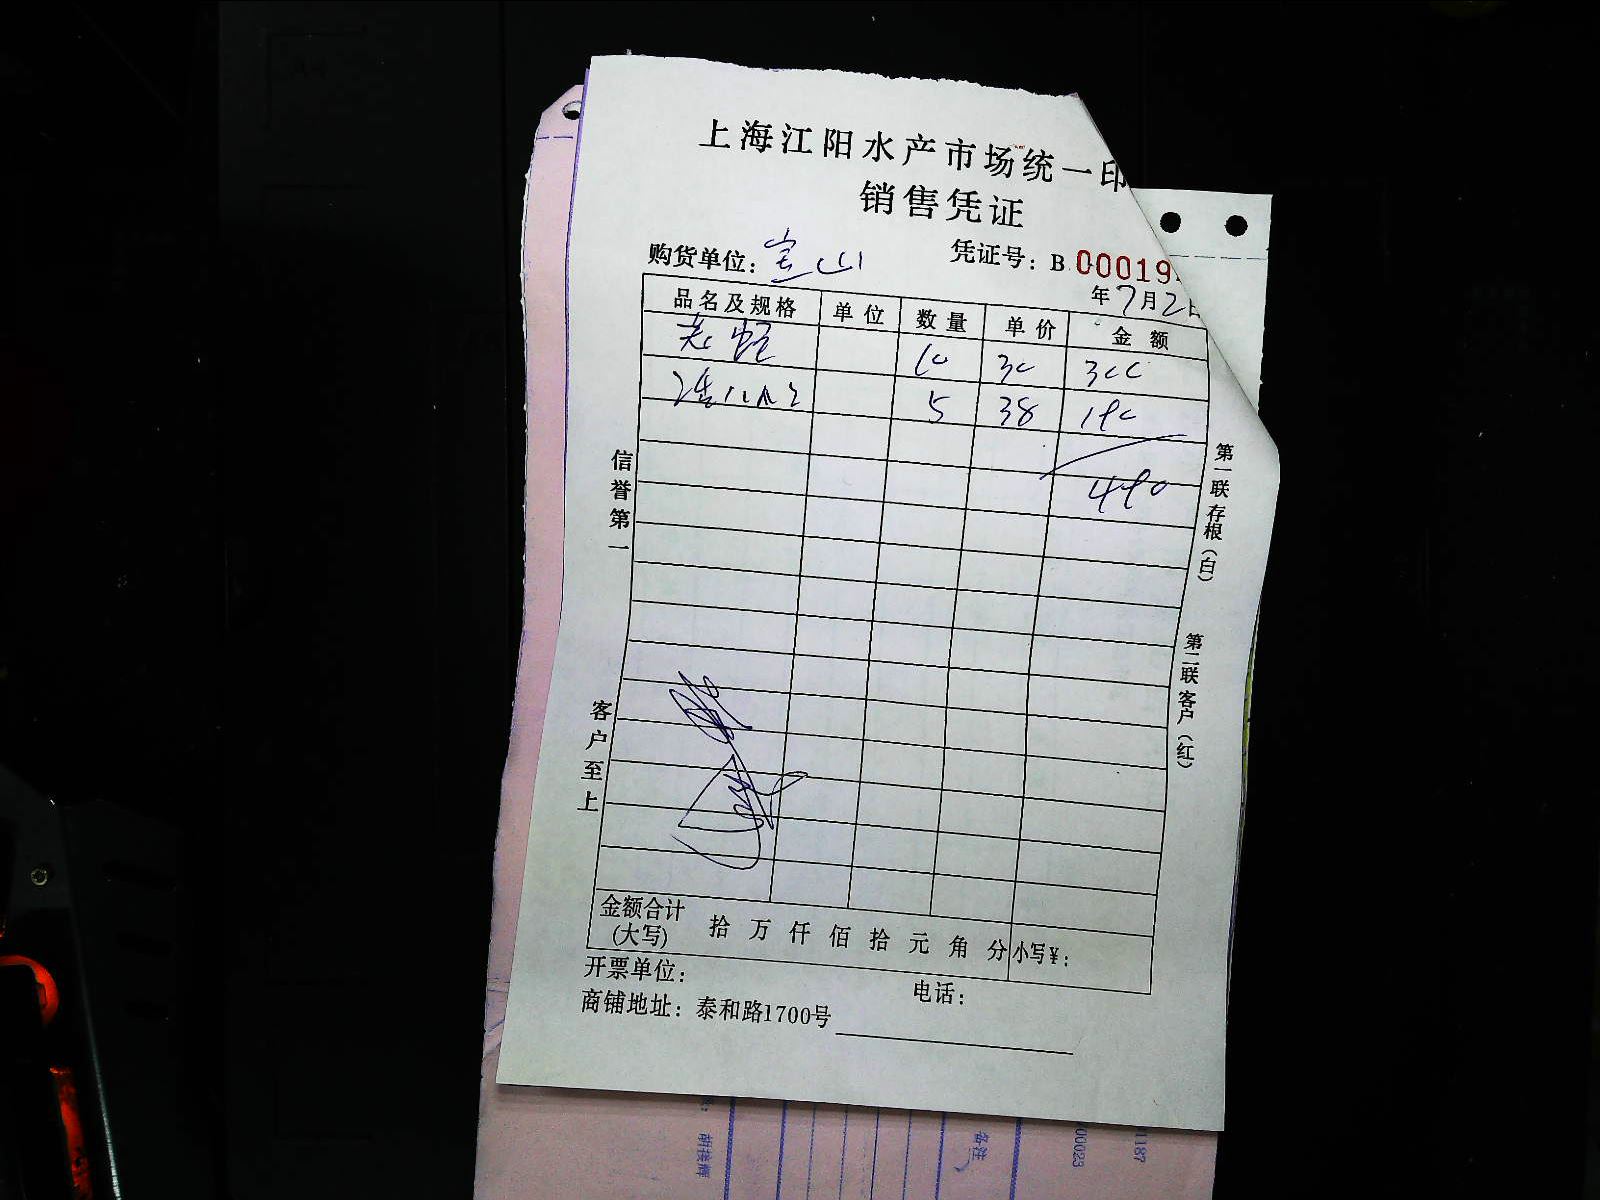 上海江阳水产市场统一印
销售凭证
购货单位：宝山 凭证号：B 00019
年7月2日
品名及规格 单位 数量 单价 金额
老蛏 10 30 300
5 38 190
490
信誉第一
客户至上
第一联存根（白）
第二联客户（红）
金额合计（大写） 拾 万 仟 佰 拾 元 角 分 小写¥：
开票单位： 电话：
商铺地址：泰和路1700号
备注
00023
1187